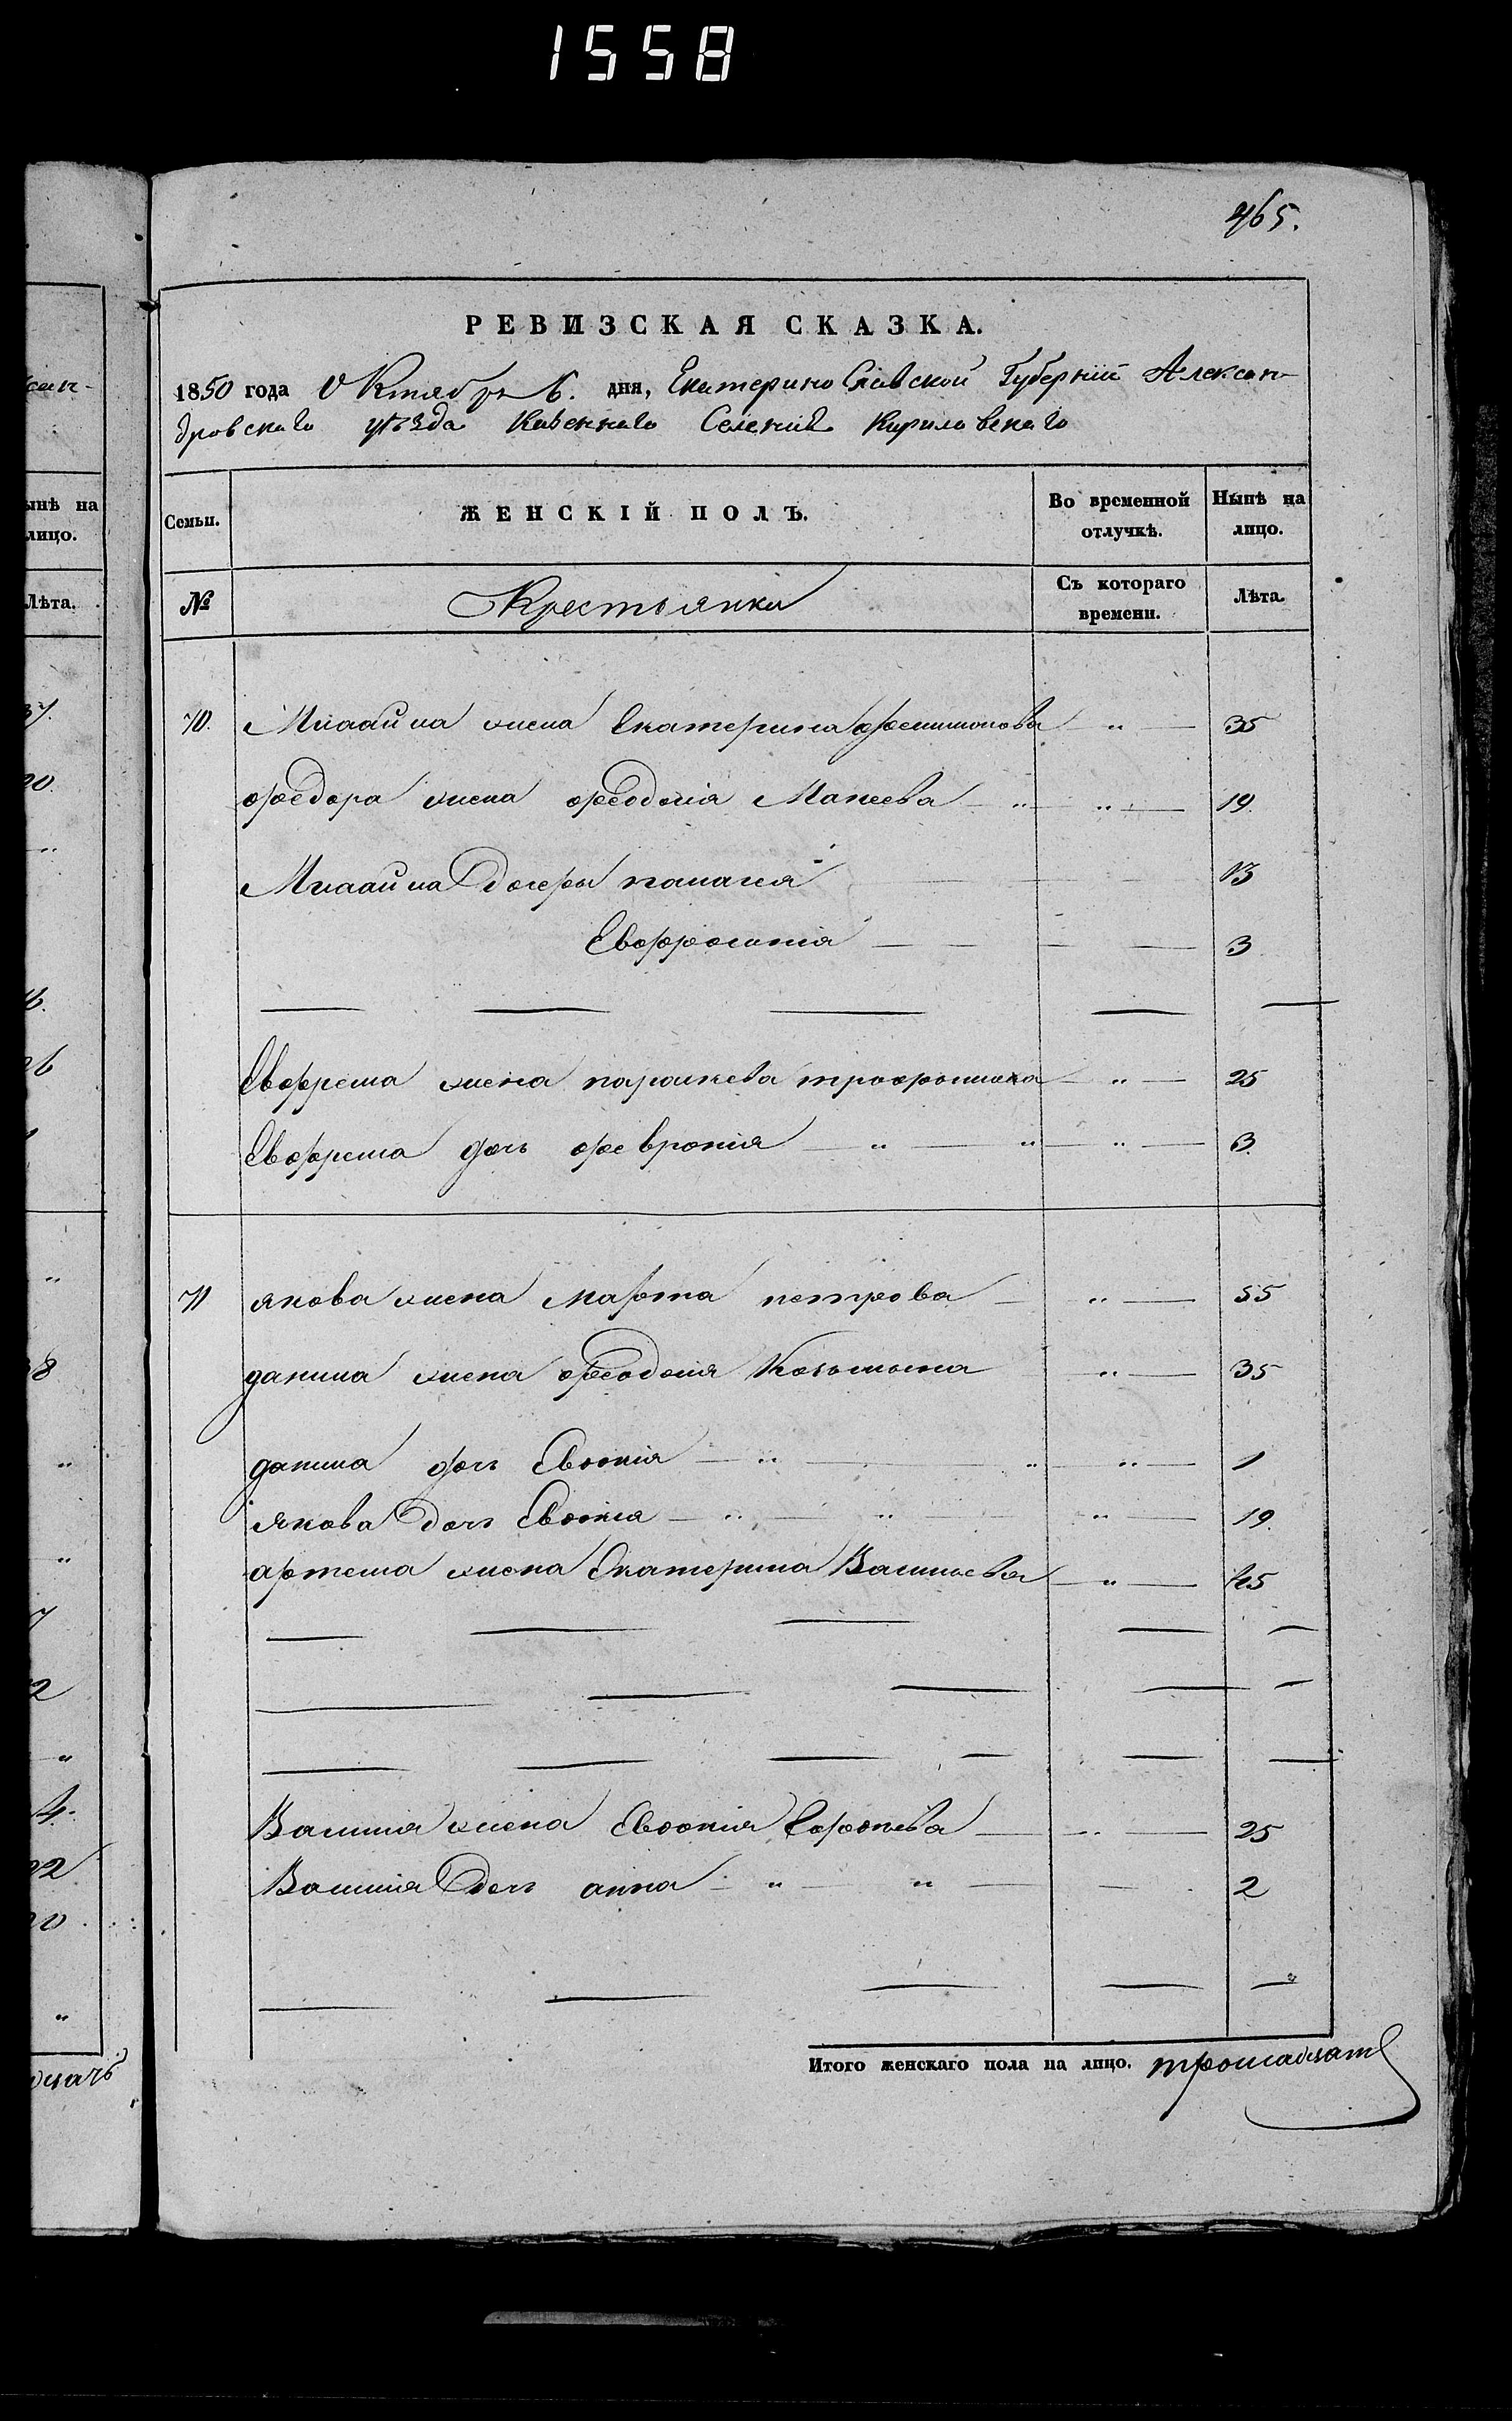 1558
465.
РЕВИЗСКАЯ СКАЗКА.
1850 года Октября 6. дня, Екатеринославской Губерніи Алексан-
дровскаго уѣзда Казеннаго Селенія Кириловскаго
Семьи. ЖЕНСКІЙ ПОЛЪ. Во временной отлучкѣ. Нынѣ на лицо.
№ Крестьянки Съ котораго времени. Лѣта.
70. Михайла жена Екатерина " 35
Федора жена Феодосія Макеева " " 19.
Михайла дочеры 13
Евфросинія 3
Евфрема жена парасκева " 25
Евфрема дочь февронія " " " 3.
71 якова жена Марфа петрова " 55
данила жена Феодосія Козьмина " 35
данила дочь Евдокія " " " 1
якова дочь Евдокія " " " 19.
артема жена Екатерина Васильева " 45
Василія жена Евдокія " 25
Василія дочь анна " " 2
"
Итого женскаго пола на лицо. тринадцать
ынѣ на
лицо.
Лѣта.